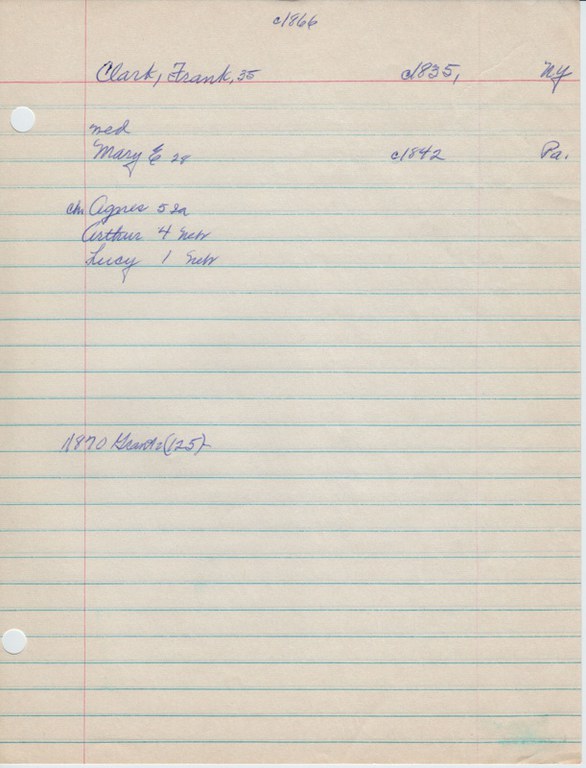 c1866
Clark, Frank, 35 c1835, NY
med
Mary E 28 c1842 Pa.
ch Agnes 5 Ia
Arthur 4 Nebr
Lucy 1 Nebr
1870 (125)